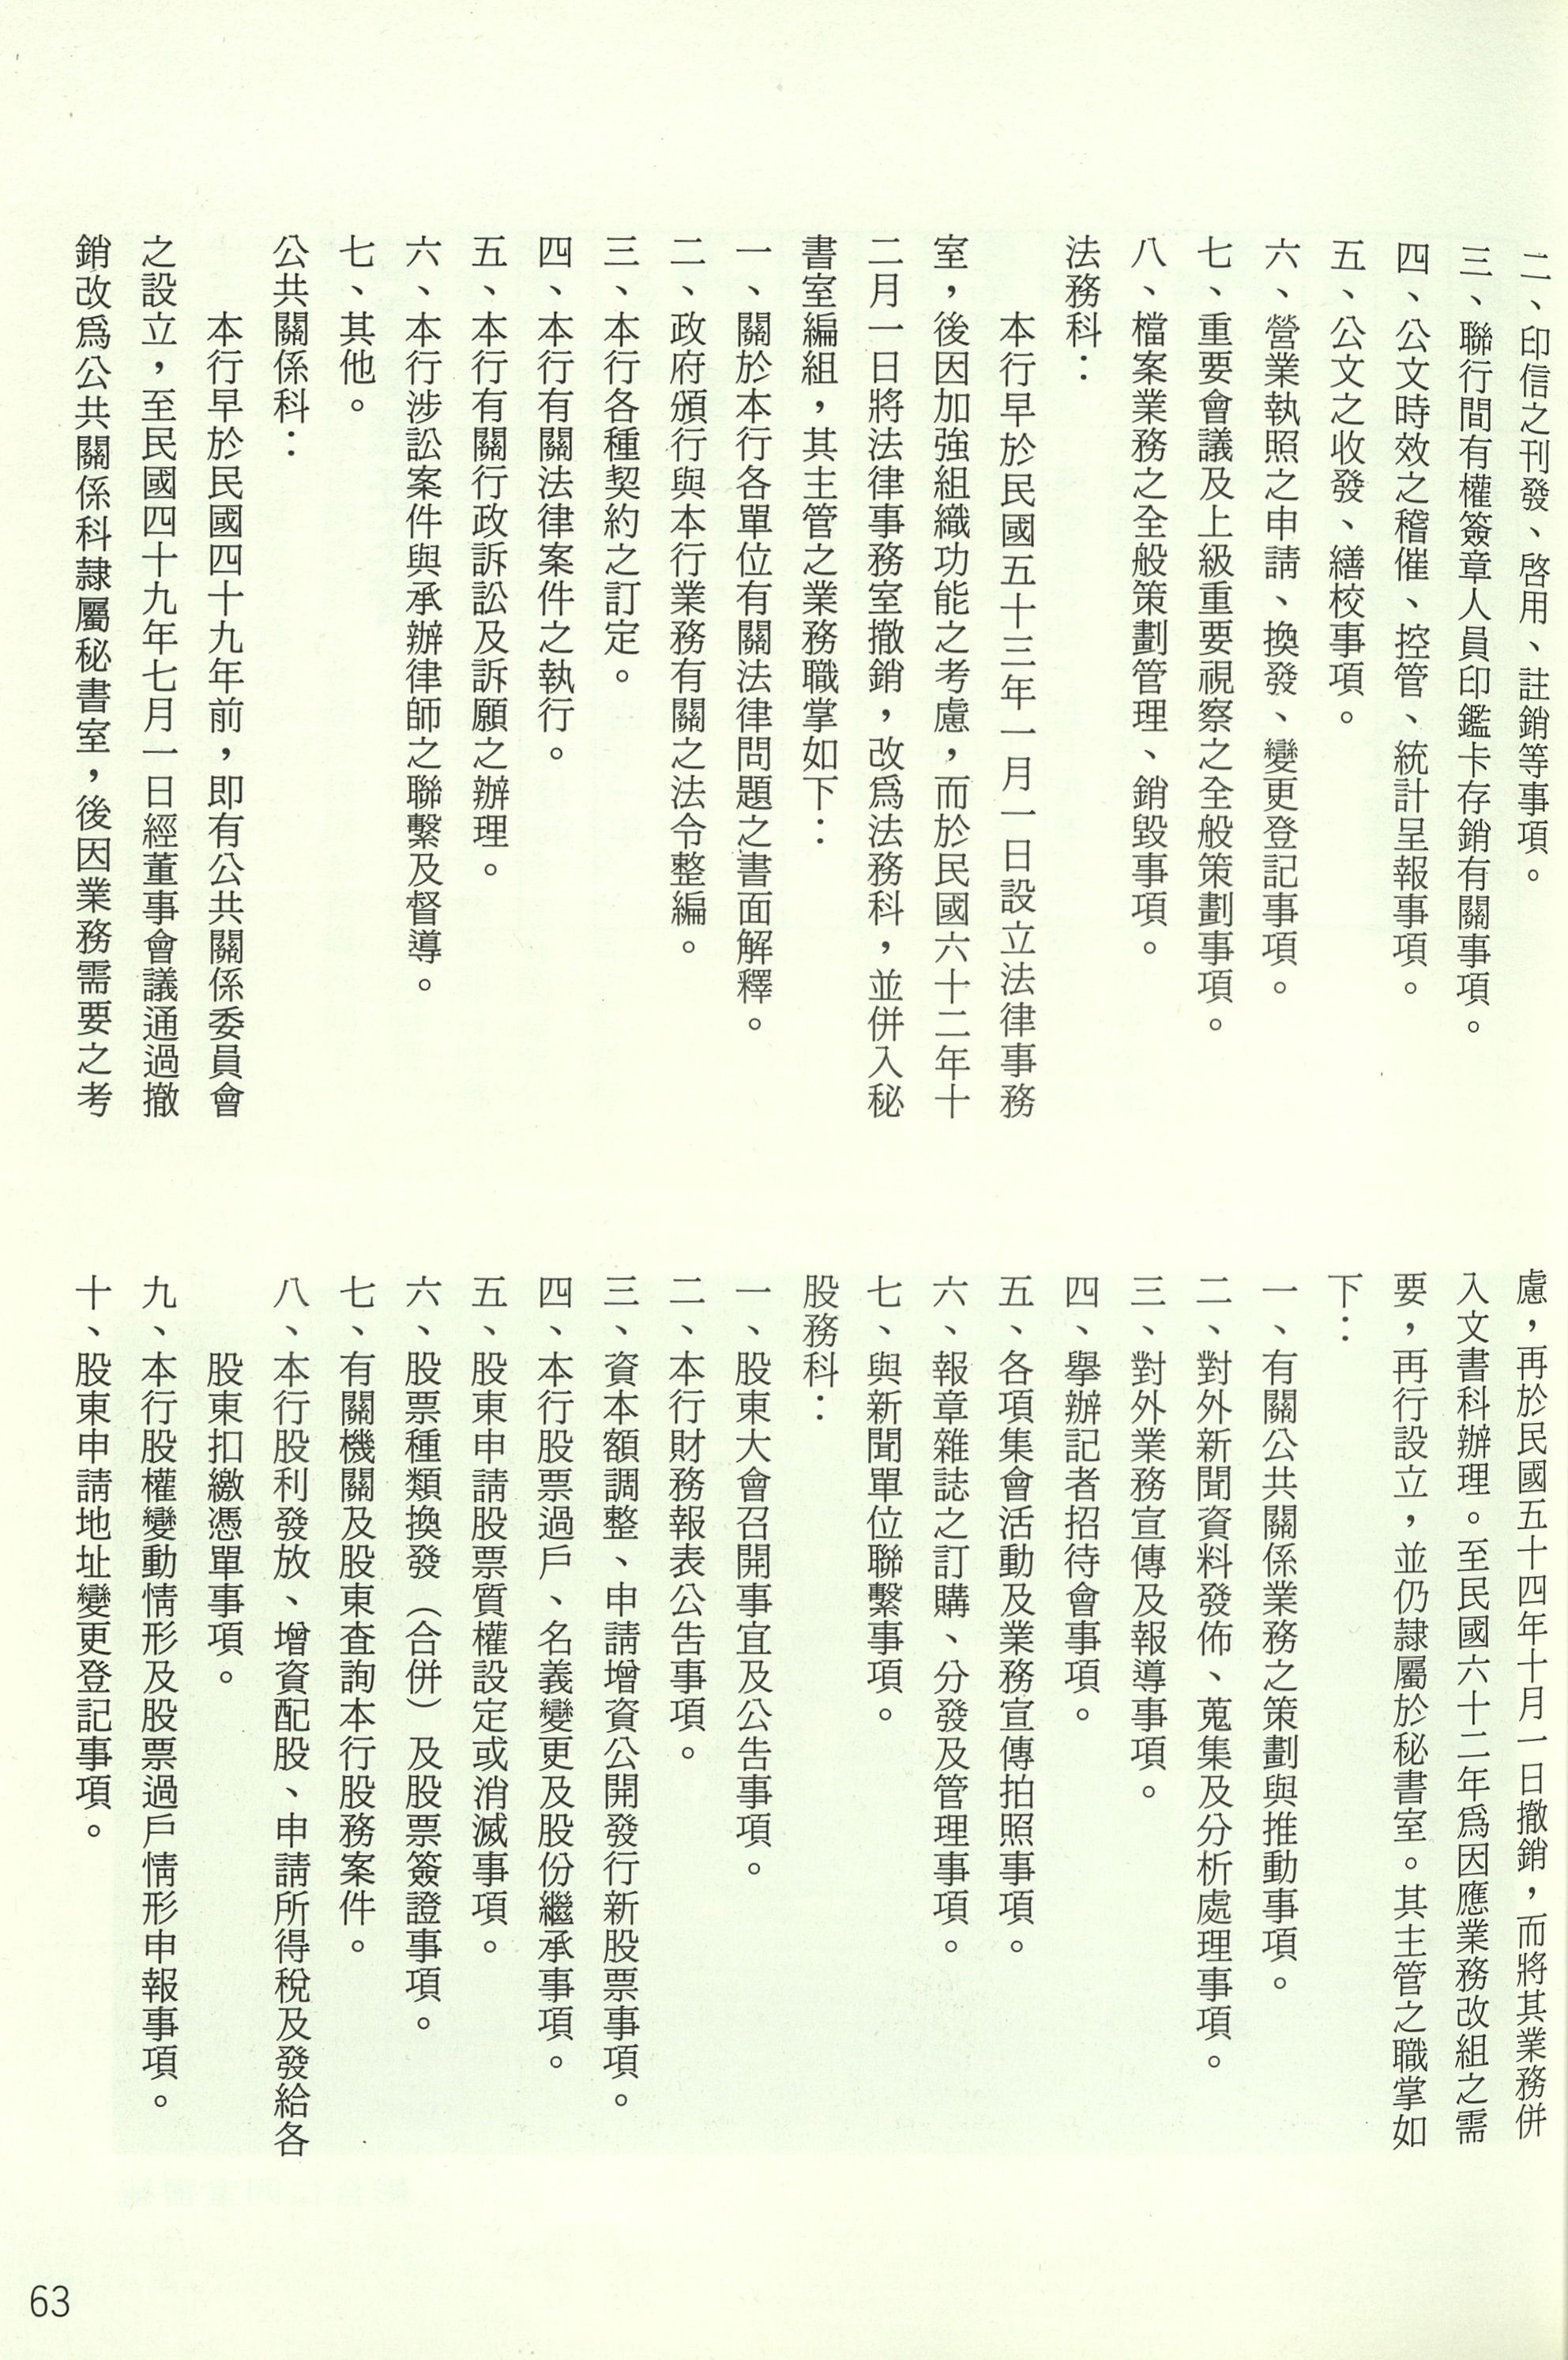 二、印信之刊發、啓用、註銷等事項。
三、聯行間有權簽章人員印鑑卡存銷有關事項。
四、公文時效之稽催、控管、統計呈報事項。
五、公文之收發、繕校事項。
六、營業執照之申請、換發、變更登記事項。
七、重要會議及上級重要視察之全般策劃事項。
八、檔案業務之全般策劃管理、銷毀事項。
法務科：
本行早於民國五十三年一月一日設立法律事務
室，後因加強組織功能之考慮，而於民國六十二年十
二月一日將法律事務室撤銷，改爲法務科，並併入秘
書室編組，其主管之業務職掌如下：
一、關於本行各單位有關法律問題之書面解釋。
二、政府頒行與本行業務有關之法令整編。
三、本行各種契約之訂定。
四、本行有關法律案件之執行。
五、本行有關行政訴訟及訴願之辦理。
六、本行涉訟案件與承辦律師之聯繫及督導。
七、其他。
公共關係科：
本行早於民國四十九年前，即有公共關係委員會
之設立，至民國四十九年七月一日經董事會議通過撤
銷改爲公共關係科隸屬秘書室，後因業務需要之考
慮，再於民國五十四年十月一日撤銷，而將其業務併
入文書科辦理。至民國六十二年爲因應業務改組之需
要，再行設立，並仍隸屬於秘書室。其主管之職掌如
下：
一、有關公共關係業務之策劃與推動事項。
二、對外新聞資料發佈、蒐集及分析處理事項。
三、對外業務宣傳及報導事項。
四、舉辦記者招待會事項。
五、各項集會活動及業務宣傳拍照事項。
六、報章雜誌之訂購、分發及管理事項。
七、與新聞單位聯繫事項。
股務科：
一、股東大會召開事宜及公告事項。
二、本行財務報表公告事項。
三、資本額調整、申請增資公開發行新股票事項。
四、本行股票過戶、名義變更及股份繼承事項。
五、股東申請股票質權設定或消滅事項。
六、股票種類換發（合併）及股票簽證事項。
七、有關機關及股東查詢本行股務案件。
八、本行股利發放、增資配股、申請所得稅及發給各
股東扣繳憑單事項。
九、本行股權變動情形及股票過戶情形申報事項。
十、股東申請地址變更登記事項。
63